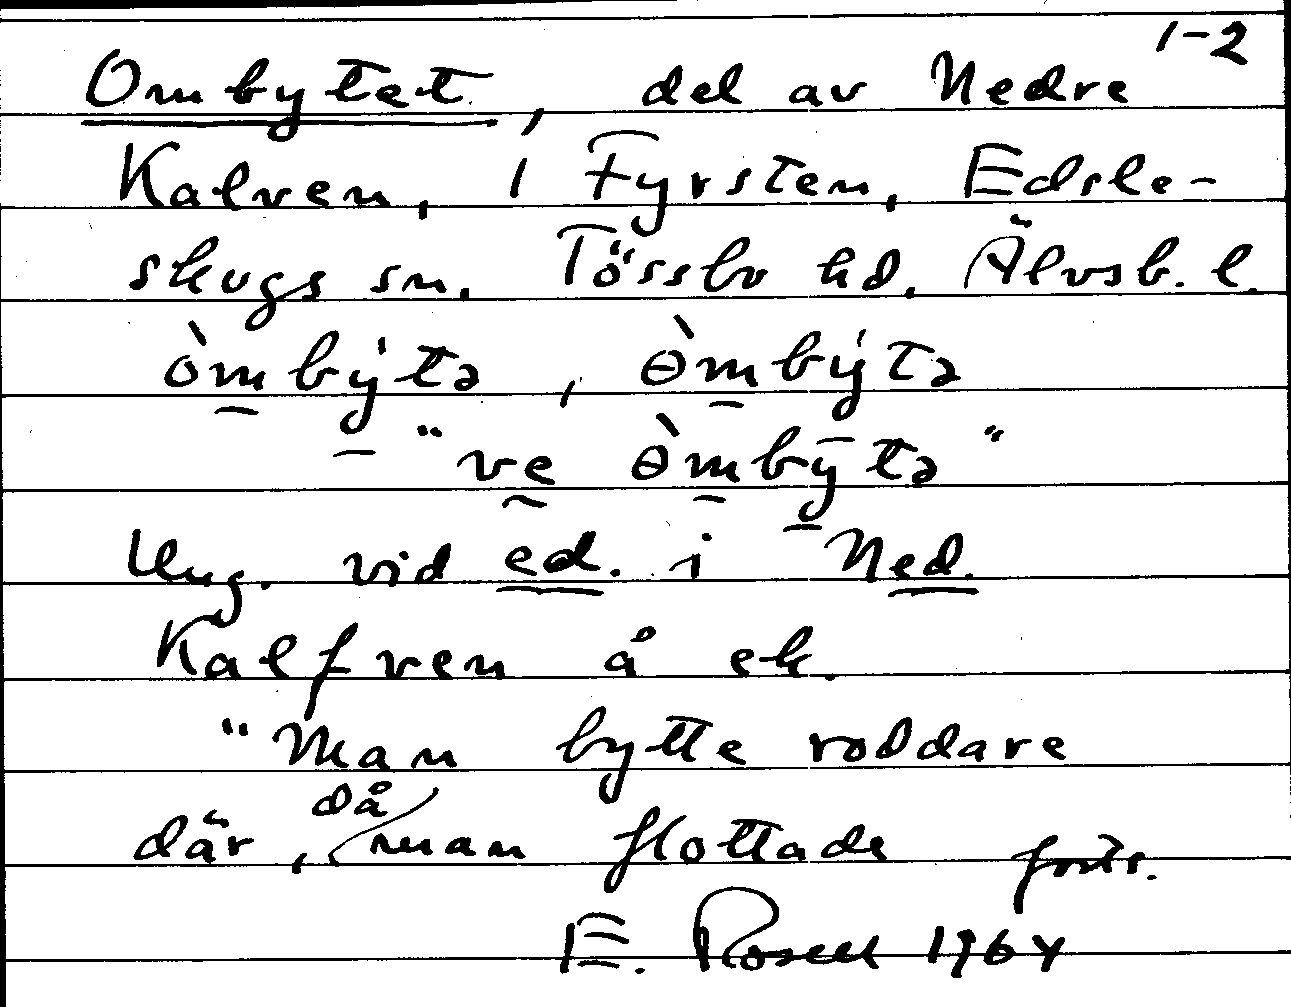 1-2
Ombytet, del av Nedre
Kalven, i Fyrsten, Edsle-
skogs sn. Tössbo hd. Älvsb. l.
òmbýtə, ɵ̀mbýtə
– "ve ɵ̀mbȳtə"
Ung. vid ed. i Ned.
Kalfven å ek.
"Man bytte roddare
där, då man flottade forts.
E. Rosell 1964